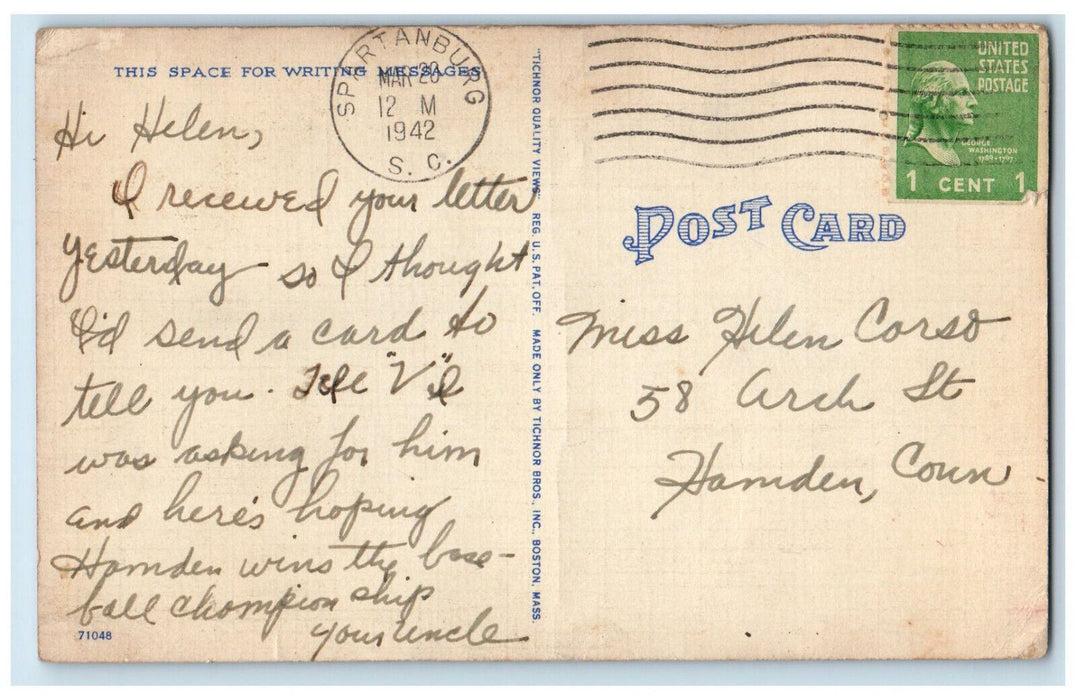 THIS SPACE FOR WRITING MESSAGES
SPARTANBURG
MAR 20
12 M
1942
S. C.
Hi Helen,
I received your letter
yesterday so I thought
I'd send a card to
tell you. Tell "V" I
was asking for him
and here's hoping
Hamden wins the base-
ball championship
your uncle
71048
"TICHNOR QUALITY VIEWS" REG. U. S. PAT. OFF. MADE ONLY BY TICHNOR BROS., INC., BOSTON, MASS.
UNITED
STATES
POSTAGE
GEORGE
WASHINGTON
1789-1797
1 CENT 1
POST CARD
Miss Helen Corso
58 Arch St
Hamden, Conn